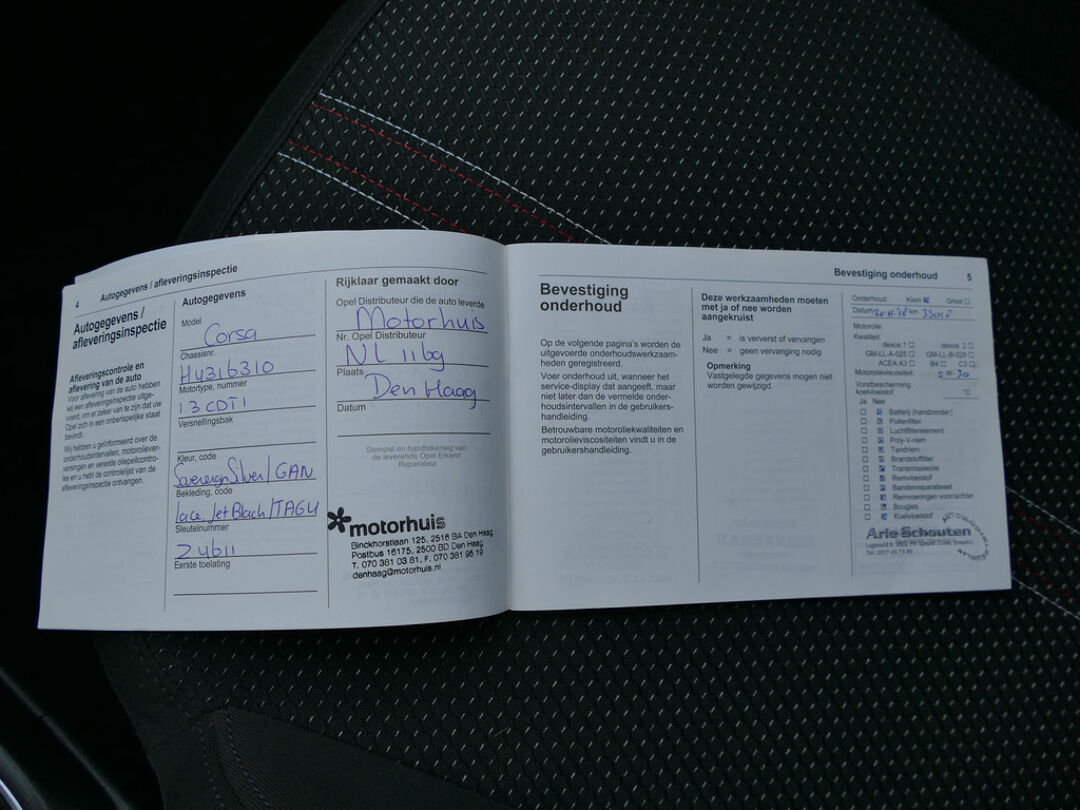 4
Autogegevens / afleveringsinspectie
Autogegevens /
afleveringsinspectie
Afleveringscontrole en
aflevering van de auto
Voor aflevering van de auto hebben
wij een afleveringsinspectie uitge-
voerd, om er zeker van te zijn dat uw
Opel zich in een onberispelijke staat
bevindt.
Wij hebben u geïnformeerd over de
onderhoudsintervallen, motoroliever-
versingen en vereiste oliepeilcontro-
les en u hebt de controlelijst van de
afleveringsinspectie ontvangen.
Autogegevens
Model
Corsa
Chassisnr.
H4316310
Motortype, nummer
1.3 CDTI
Versnellingsbak
Kleur, code
Sovereign Silver / GAN
Bekleding, code
Lace Jet Black / TAGU
Sleutelnummer
Z4611
Eerste toelating
Rijklaar gemaakt door
Opel Distributeur die de auto leverde
Motorhuis
Nr. Opel Distributeur
NL 116g
Plaats
Den Haag
Datum
Stempel en handtekening van
de leverende Opel Erkend
Reparateur
motorhuis
Binckhorstlaan 125, 2516 BA Den Haag
Postbus 16175, 2500 BD Den Haag
T. 070 381 03 81, F. 070 381 95 19
denhaag@motorhuis.nl
Bevestiging onderhoud
5
Bevestiging
onderhoud
Op de volgende pagina's worden de
uitgevoerde onderhoudswerkzaam-
heden geregistreerd.
Voer onderhoud uit, wanneer het
service-display dat aangeeft, maar
niet later dan de vermelde onder-
houdsintervallen in de gebruikers-
handleiding.
Betrouwbare motoroliekwaliteiten en
motorolieviscositeiten vindt u in de
gebruikershandleiding.
Deze werkzaamheden moeten
met ja of nee worden
aangekruist
Ja = is ververst of vervangen
Nee = geen vervanging nodig
Opmerking
Vastgelegde gegevens mogen niet
worden gewijzigd.
Onderhoud: Klein Groot
Datum 20-11-'18 km 33018
Motorolie
Kwaliteit:
dexos 1 dexos 2
GM-LL-A-025 GM-LL-B-025
ACEA A3 B4 C3
Motorolieviscositeit: 5W30
Vorstbescherming,
koelvloeistof: °C
Ja Nee
Batterij (handzender)
Pollenfilter
Luchtfilterelement
Poly-V-riem
Tandriem
Brandstoffilter
Transmissieolie
Remvloeistof
Bandenreparatieset
Remvoeringen voor/achter
Bougies
Koelvloeistof
Arie Schouten